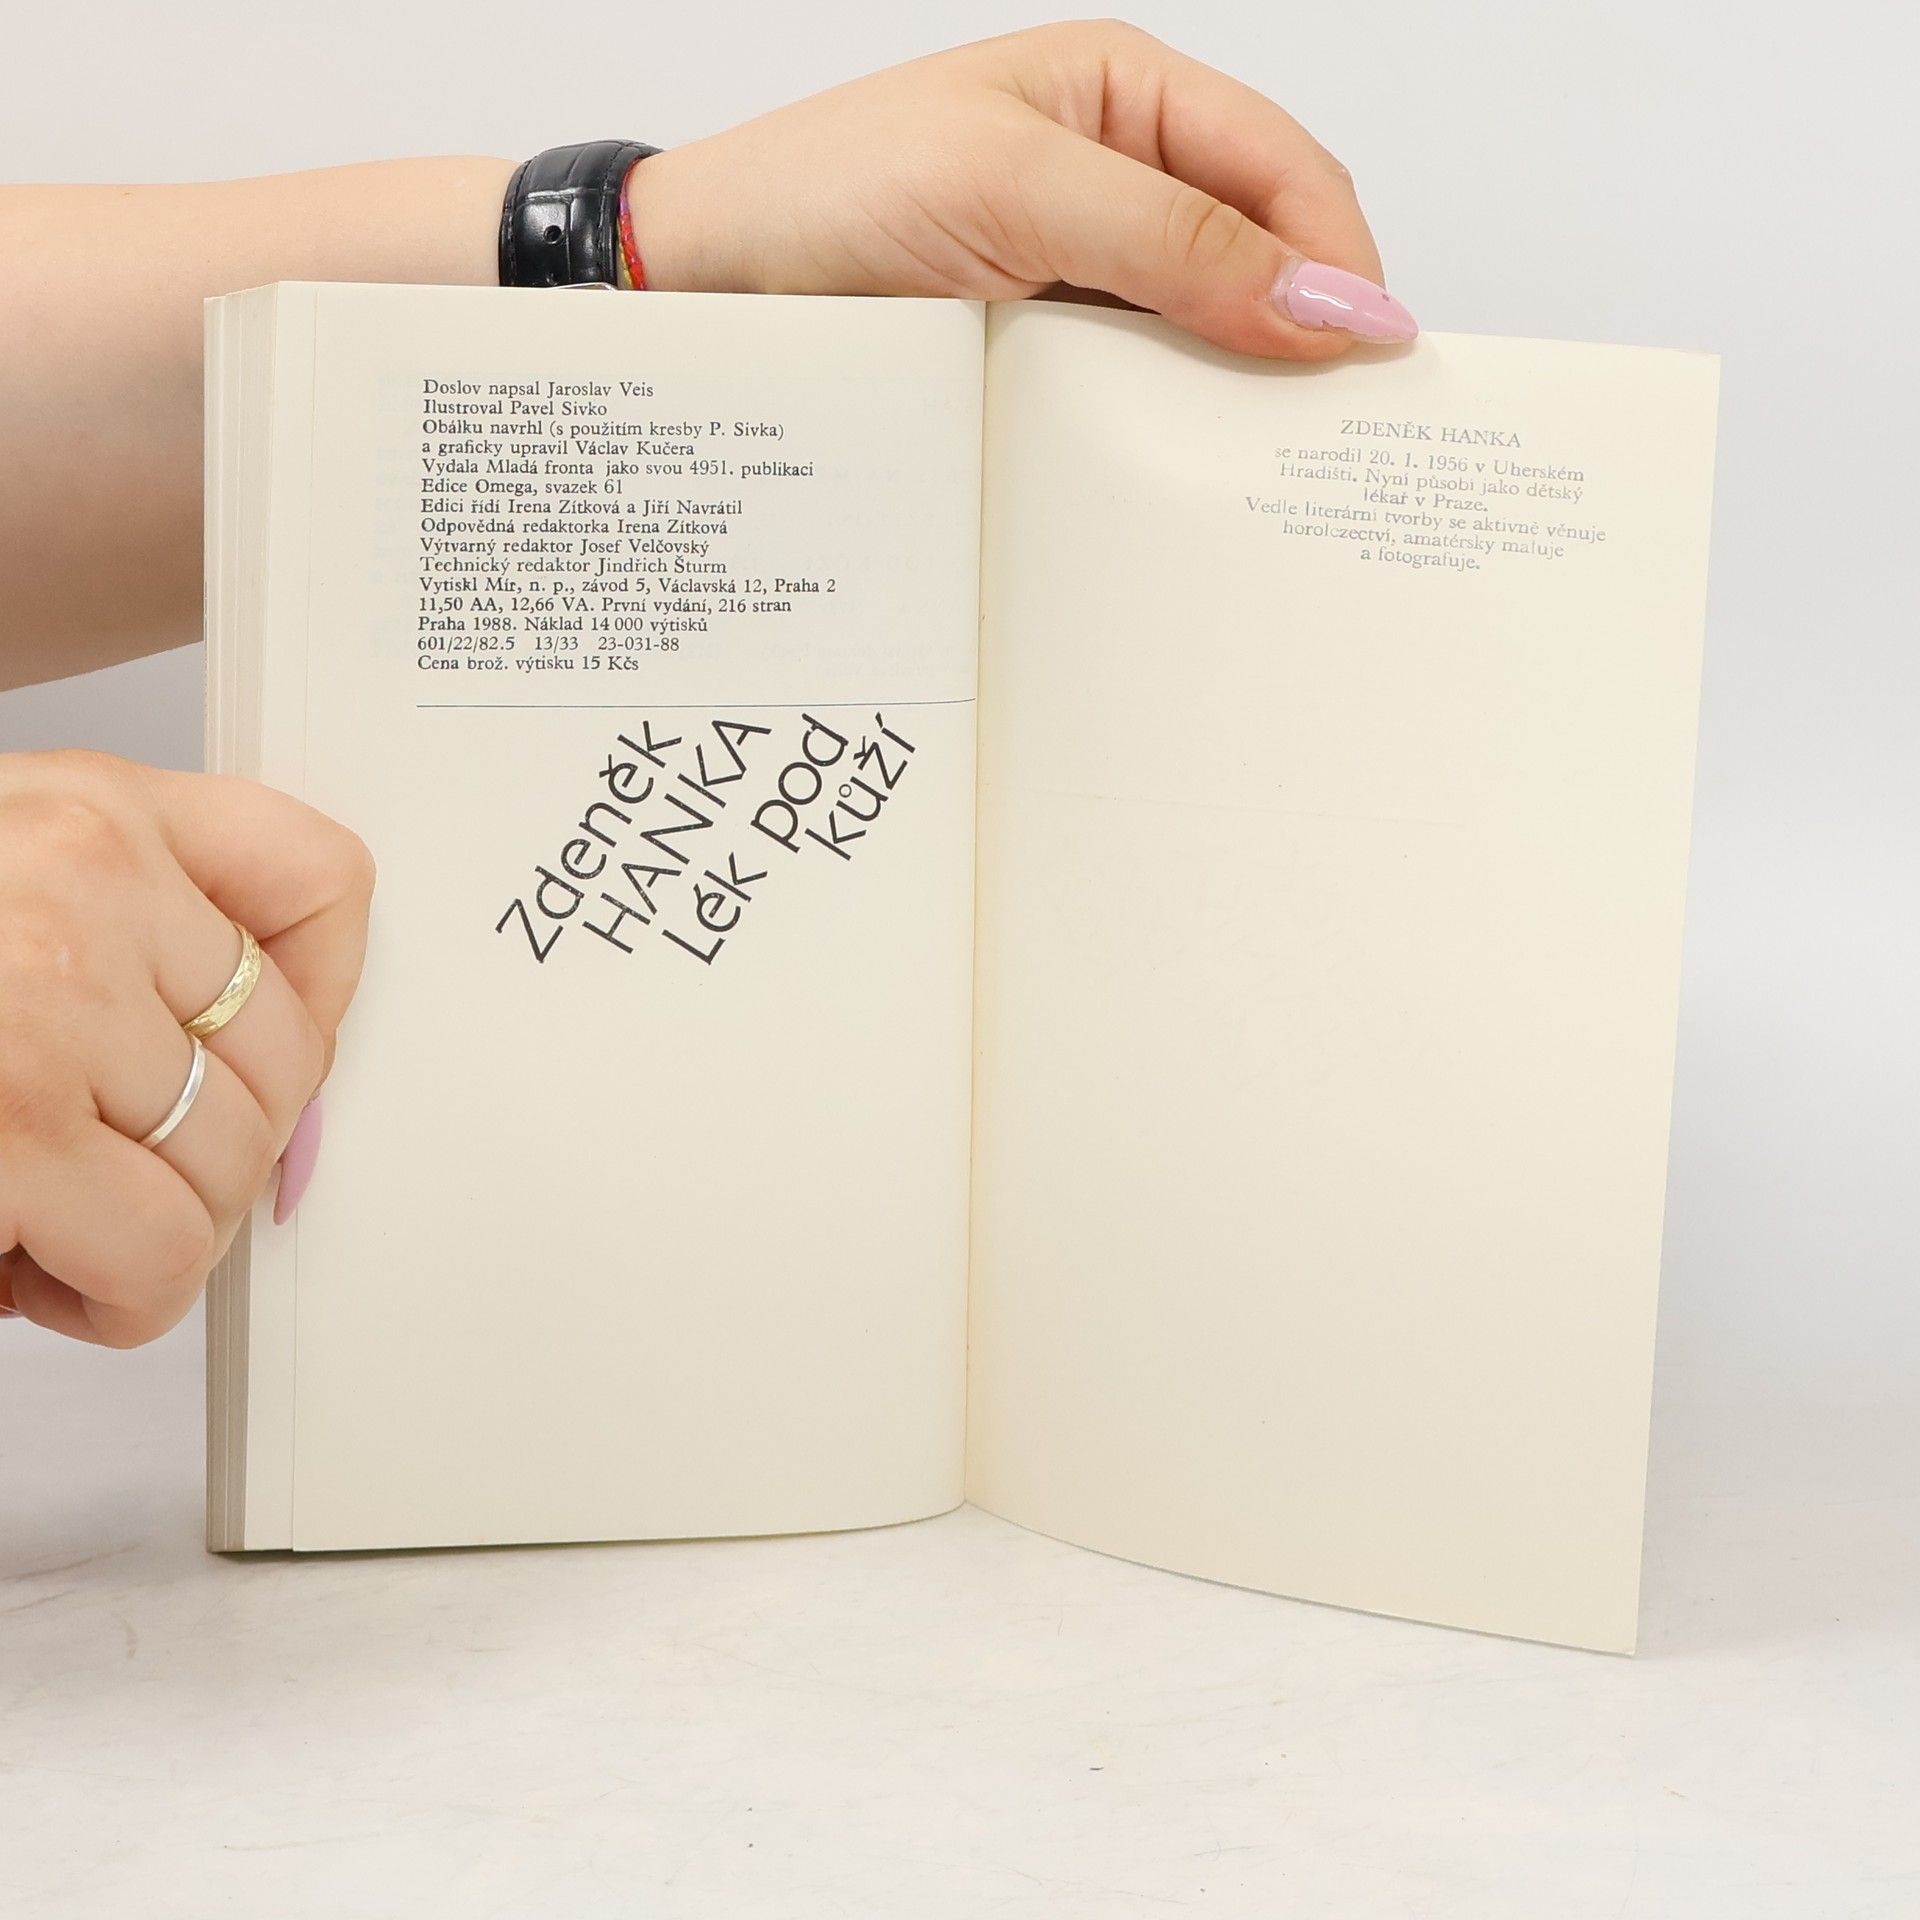 Doslov napsal Jaroslav Veis
Ilustroval Pavel Sivko
Obálku navrhl (s použitím kresby P. Sivka)
a graficky upravil Václav Kučera
Vydala Mladá fronta jako svou 4951. publikaci
Edice Omega, svazek 61
Edici řídí Irena Zítková a Jiří Navrátil
Odpovědná redaktorka Irena Zítková
Výtvarný redaktor Josef Velčovský
Technický redaktor Jindřich Šturm
Vytiskl Mír, n. p., závod 5, Václavská 12, Praha 2
11,50 AA, 12,66 VA. První vydání, 216 stran
Praha 1988. Náklad 14 000 výtisků
601/22/82.5 13/33 23-031-88
Cena brož. výtisku 15 Kčs
Zdeněk
HANKA
Lék pod
kůží
ZDENĚK HANKA
se narodil 20. 1. 1956 v Uherském
Hradišti. Nyní působí jako dětský
lékař v Praze.
Vedle literární tvorby se aktivně věnuje
horolezectví, amatérsky maluje
a fotografuje.